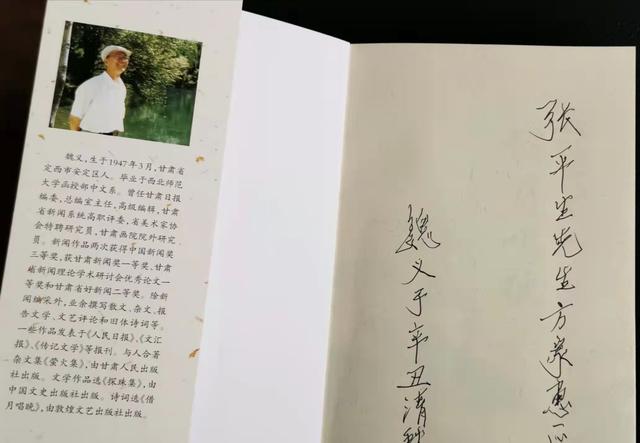 魏义，生于1947年3月，甘肃省
定西市安定区人。毕业于西北师范
大学函授部中文系。曾任甘肃日报
编委，总编室主任，高级编辑，甘肃
省新闻系统高职评委，省美术家协
会特聘研究员，甘肃画院院外研究
员。新闻作品两次获得中国新闻奖
三等奖，获甘肃新闻奖一等奖、甘肃
省新闻理论学术研讨会优秀论文一
等奖和甘肃省好新闻二等奖。除新
闻编采外，业余撰写散文、杂文、报
告文学、文艺评论和旧体诗词等。
一些作品发表于《人民日报》、《文汇
报》、《传记文学》等报刊。与人合著
杂文集《萤火集》，由甘肃人民出版
社出版。文学作品选《探珠集》，由
中国文史出版社出版。诗词选《借
月唱晚》，由敦煌文艺出版社出版。
张平生先生方家惠
魏义于辛丑清秋